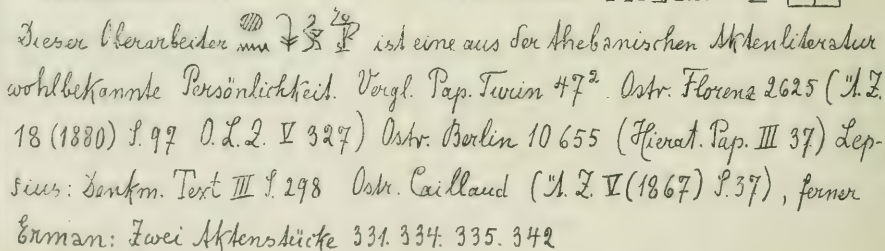 Dieser Oberarbeiter ist eine aus der thebanischen Aktenliteratur
wohlbekannte Persönlichkeit. Vergl. Pap. Turin 47². Ostr. Florenz 2625 (Ä.Z.
18 (1880) S. 97 O.L.Z. V 327) Ostr. Berlin 10 655 (Hierat. Pap. III 37) Lep-
sius: Denkm. Text III S. 298 Ostr. Caillaud (Ä.Z. V (1867) S. 37), ferner
Erman: Zwei Aktenstücke 331. 334. 335. 342